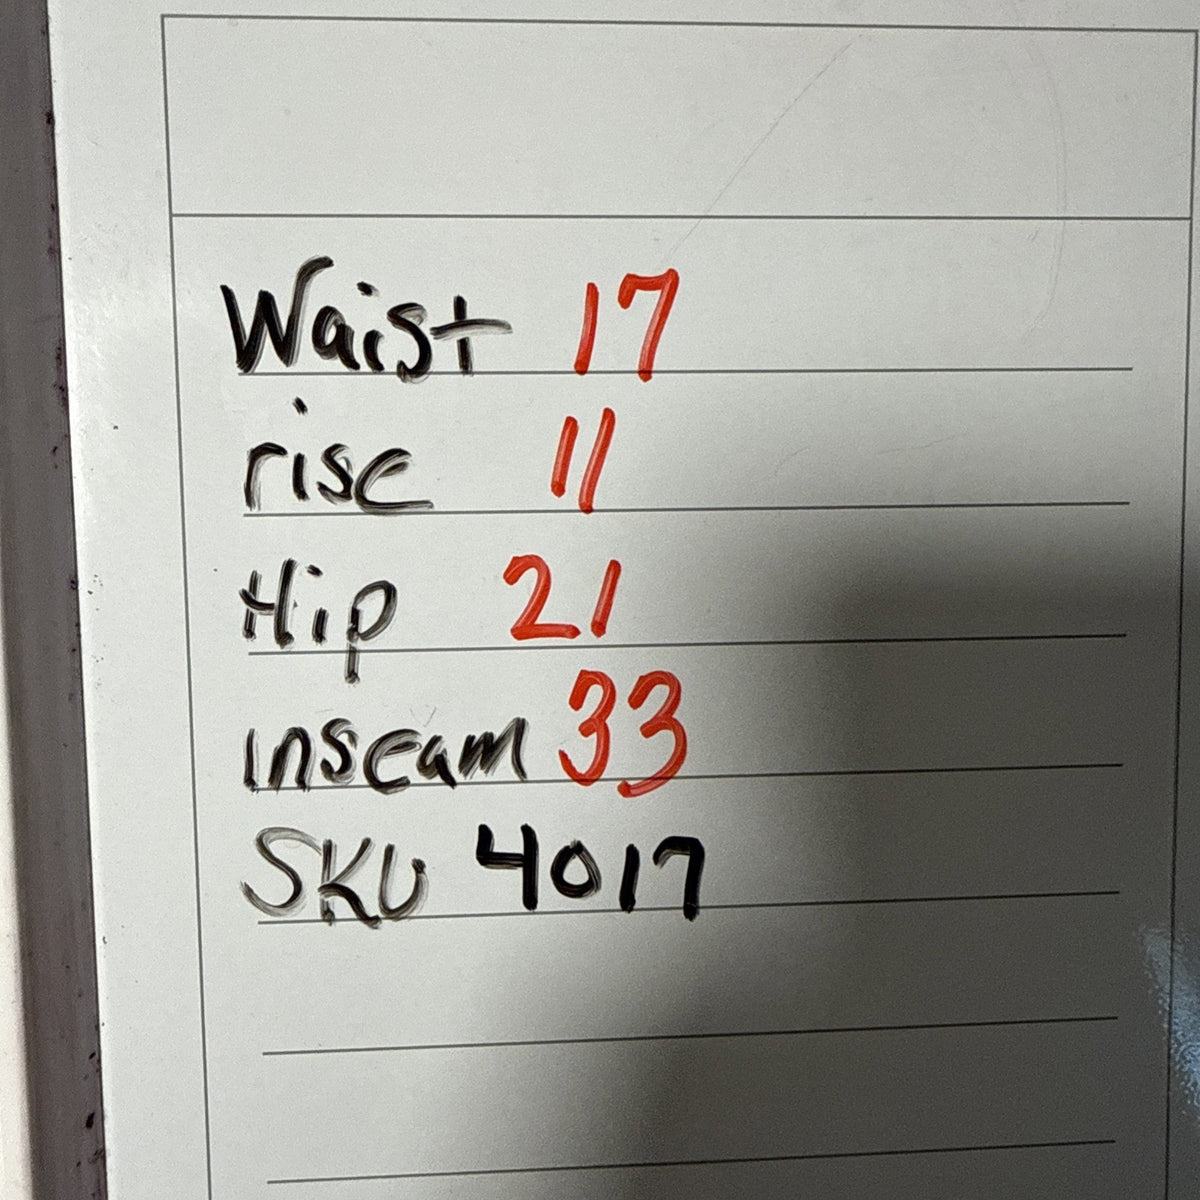 Waist 17
rise 11
Hip 21
inseam 33
SKU 4017